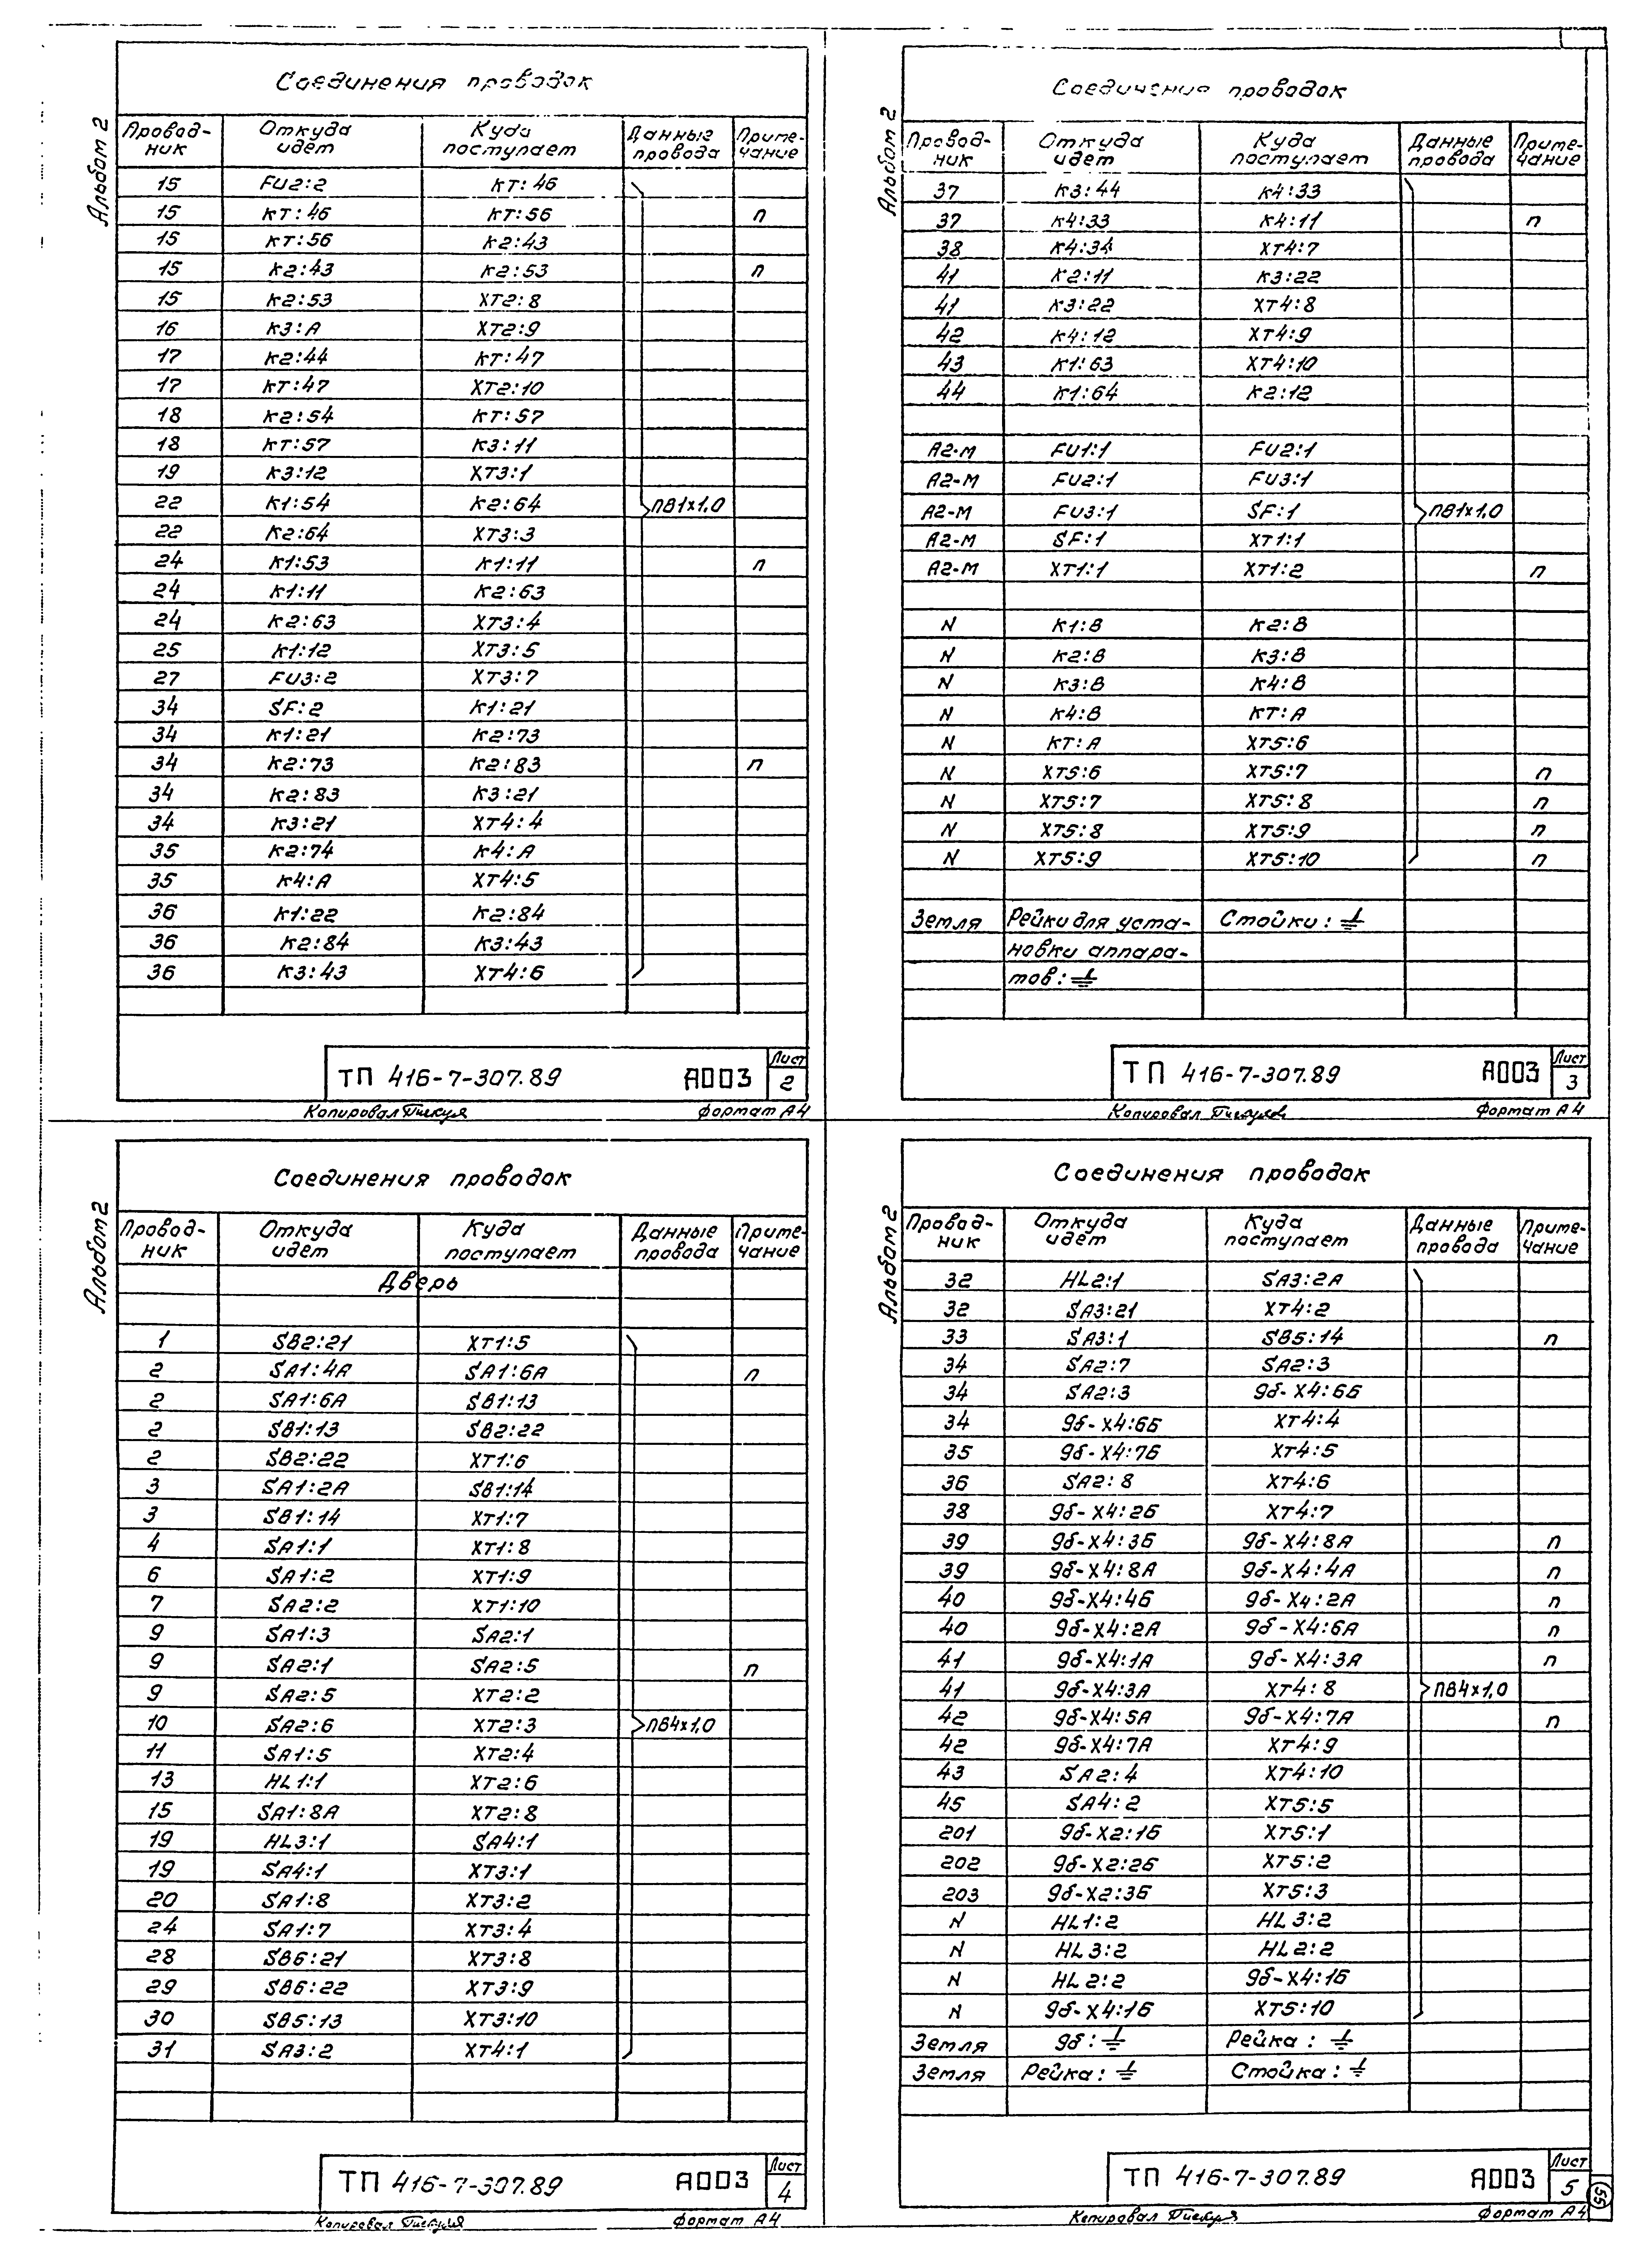 Альбом 2
Соединения проводок
Провод-ник Откуда идет Куда поступает Данные провода Приме-чание
15 FU2:2 КТ:46
15 КТ:46 КТ:56 п
15 КТ:56 К2:43
15 К2:43 К2:53 п
15 К2:53 ХТ2:8
16 К3:А ХТ2:9
17 К2:44 КТ:47
17 КТ:47 ХТ2:10
18 К2:54 КТ:57
18 КТ:57 К3:11
19 К3:12 ХТ3:1
22 К1:54 К2:64 ПВ1х1,0
22 К2:64 ХТ3:3
24 К1:53 К1:11 п
24 К1:11 К2:63
24 К2:63 ХТ3:4
25 К1:12 ХТ3:5
27 FU3:2 ХТ3:7
34 SF:2 К1:21
34 К1:21 К2:73
34 К2:73 К2:83 п
34 К2:83 К3:21
34 К3:21 ХТ4:4
35 К2:74 К4:А
35 К4:А ХТ4:5
36 К1:22 К2:84
36 К2:84 К3:43
36 К3:43 ХТ4:6
ТП 416-7-307.89 АОО3 Лист 2
Копировал Формат А4
Альбом 2
Соединения проводок
Провод-ник Откуда идет Куда поступает Данные провода Приме-чание
37 К3:44 К4:33
37 К4:33 К4:11 п
38 К4:34 ХТ4:7
41 К2:11 К3:22
41 К3:22 ХТ4:8
42 К4:12 ХТ4:9
43 К1:63 ХТ4:10
44 К1:64 К2:12
А2-М FU1:1 FU2:1
А2-М FU2:1 FU3:1
А2-М FU3:1 SF:1 ПВ1х1,0
А2-М SF:1 ХТ1:1
А2-М ХТ1:1 ХТ1:2 п
N К1:В К2:В
N К2:В К3:В
N К3:В К4:В
N К4:В КТ:А
N КТ:А ХТ5:6
N ХТ5:6 ХТ5:7 п
N ХТ5:7 ХТ5:8 п
N ХТ5:8 ХТ5:9 п
N ХТ5:9 ХТ5:10 п
Земля Рейки для уста- Стойки: ⏚
новки аппара-
тов: ⏚
ТП 416-7-307.89 АОО3 Лист 3
Копировал Формат А4
Альбом 2
Соединения проводок
Провод-ник Откуда идет Куда поступает Данные провода Приме-чание
Дверь
1 SB2:21 ХТ1:5
2 SA1:4А SA1:6А п
2 SA1:6А SB1:13
2 SB1:13 SB2:22
2 SB2:22 ХТ1:6
3 SA1:2А SB1:14
3 SB1:14 ХТ1:7
4 SA1:1 ХТ1:8
6 SA1:2 ХТ1:9
7 SA2:2 ХТ1:10
9 SA1:3 SA2:1
9 SA2:1 SA2:5 п
9 SA2:5 ХТ2:2
10 SA2:6 ХТ2:3 ПВ4х1,0
11 SA1:5 ХТ2:4
13 HL1:1 ХТ2:6
15 SA1:8А ХТ2:8
19 HL3:1 SA4:1
19 SA4:1 ХТ3:1
20 SA1:8 ХТ3:2
24 SA1:7 ХТ3:4
28 SB6:21 ХТ3:8
29 SB6:22 ХТ3:9
30 SB5:13 ХТ3:10
31 SA3:2 ХТ4:1
ТП 416-7-307.89 АОО3 Лист 4
Копировал Формат А4
Альбом 2
Соединения проводок
Провод-ник Откуда идет Куда поступает Данные провода Приме-чание
32 HL2:1 SA3:2А
32 SA3:21 ХТ4:2
33 SA3:1 SB5:14 п
34 SA2:7 SA2:3
34 SA2:3 9б-Х4:6Б
34 9б-Х4:6Б ХТ4:4
35 9б-Х4:7Б ХТ4:5
36 SA2:8 ХТ4:6
38 9б-Х4:2Б ХТ4:7
39 9б-Х4:3Б 9б-Х4:8А п
39 9б-Х4:8А 9б-Х4:4А п
40 9б-Х4:4Б 9б-Х4:2А п
40 9б-Х4:2А 9б-Х4:6А п
41 9б-Х4:1А 9б-Х4:3А п
41 9б-Х4:3А ХТ4:8 ПВ4х1,0
42 9б-Х4:5А 9б-Х4:7А п
42 9б-Х4:7А ХТ4:9
43 SA2:4 ХТ4:10
45 SA4:2 ХТ5:5
201 9б-Х2:1Б ХТ5:1
202 9б-Х2:2Б ХТ5:2
203 9б-Х2:3Б ХТ5:3
N HL1:2 HL3:2
N HL3:2 HL2:2
N HL2:2 9б-Х4:1Б
N 9б-Х4:1Б ХТ5:10
Земля 9б: ⏚ Рейка: ⏚
Земля Рейка: ⏚ Стойка: ⏚
ТП 416-7-307.89 АОО3 Лист 5
Копировал Формат А4
55